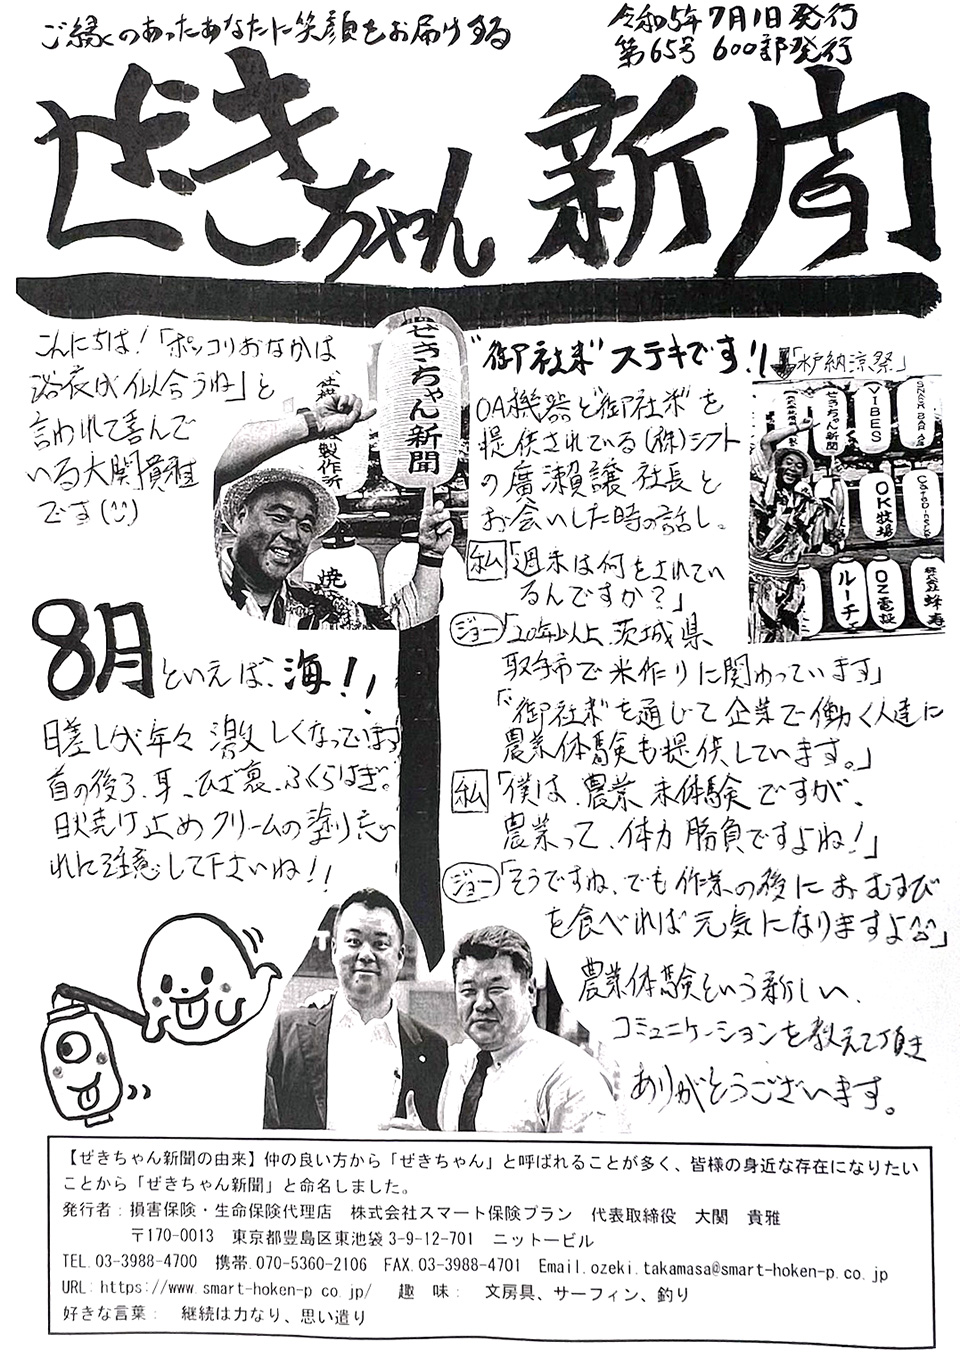 ご縁のあったあなたに笑顔をお届けする
令和5年7月1日発行
第65号 600部発行
ぜきちゃん新聞
こんにちは!「ポッコリおなかは
浴衣が似合うね」と
言われて喜んで
いる大関貴雅
です(^^)
ぜきちゃん新聞
製作所
焼
8月といえば、海!!
日差しが年々激しくなっています
首の後ろ、耳、ひざ裏、ふくらはぎ。
日焼け止めクリームの塗り忘
れに注意して下さいね!!
"御社米"ステキです!!
「水戸納涼祭」
OA機器と"御社米"を
提供されている(株)シフト
の廣瀬譲社長と
お会いした時の話し。
私「週末は何をされてい
るんですか?」
ジョー「20年以上、茨城県
取手市で米作りに関わっています」
「"御社米"を通じて企業で働く人達に
農業体験も提供しています。」
私「僕は、農業未体験ですが、
農業って、体力勝負ですよね!」
ジョー「そうですね、でも作業の後におむすび
を食べれば元気になりますよ^^」
農業体験という新しい、
コミュニケーションを教えて頂き
ありがとうございます。
ぜきちゃん新聞
VIBES
OK牧場
ルーチェ
OZ電設
【ぜきちゃん新聞の由来】仲の良い方から「ぜきちゃん」と呼ばれることが多く、皆様の身近な存在になりたい
ことから「ぜきちゃん新聞」と命名しました。
発行者:損害保険・生命保険代理店 株式会社スマート保険プラン 代表取締役 大関 貴雅
〒170-0013 東京都豊島区東池袋3-9-12-701 ニットービル
TEL.03-3988-4700 携帯.070-5360-2106 FAX.03-3988-4701 Email.ozeki.takamasa@smart-hoken-p.co.jp
URL:https://www.smart-hoken-p co.jp/ 趣 味: 文房具、サーフィン、釣り
好きな言葉: 継続は力なり、思い遣り